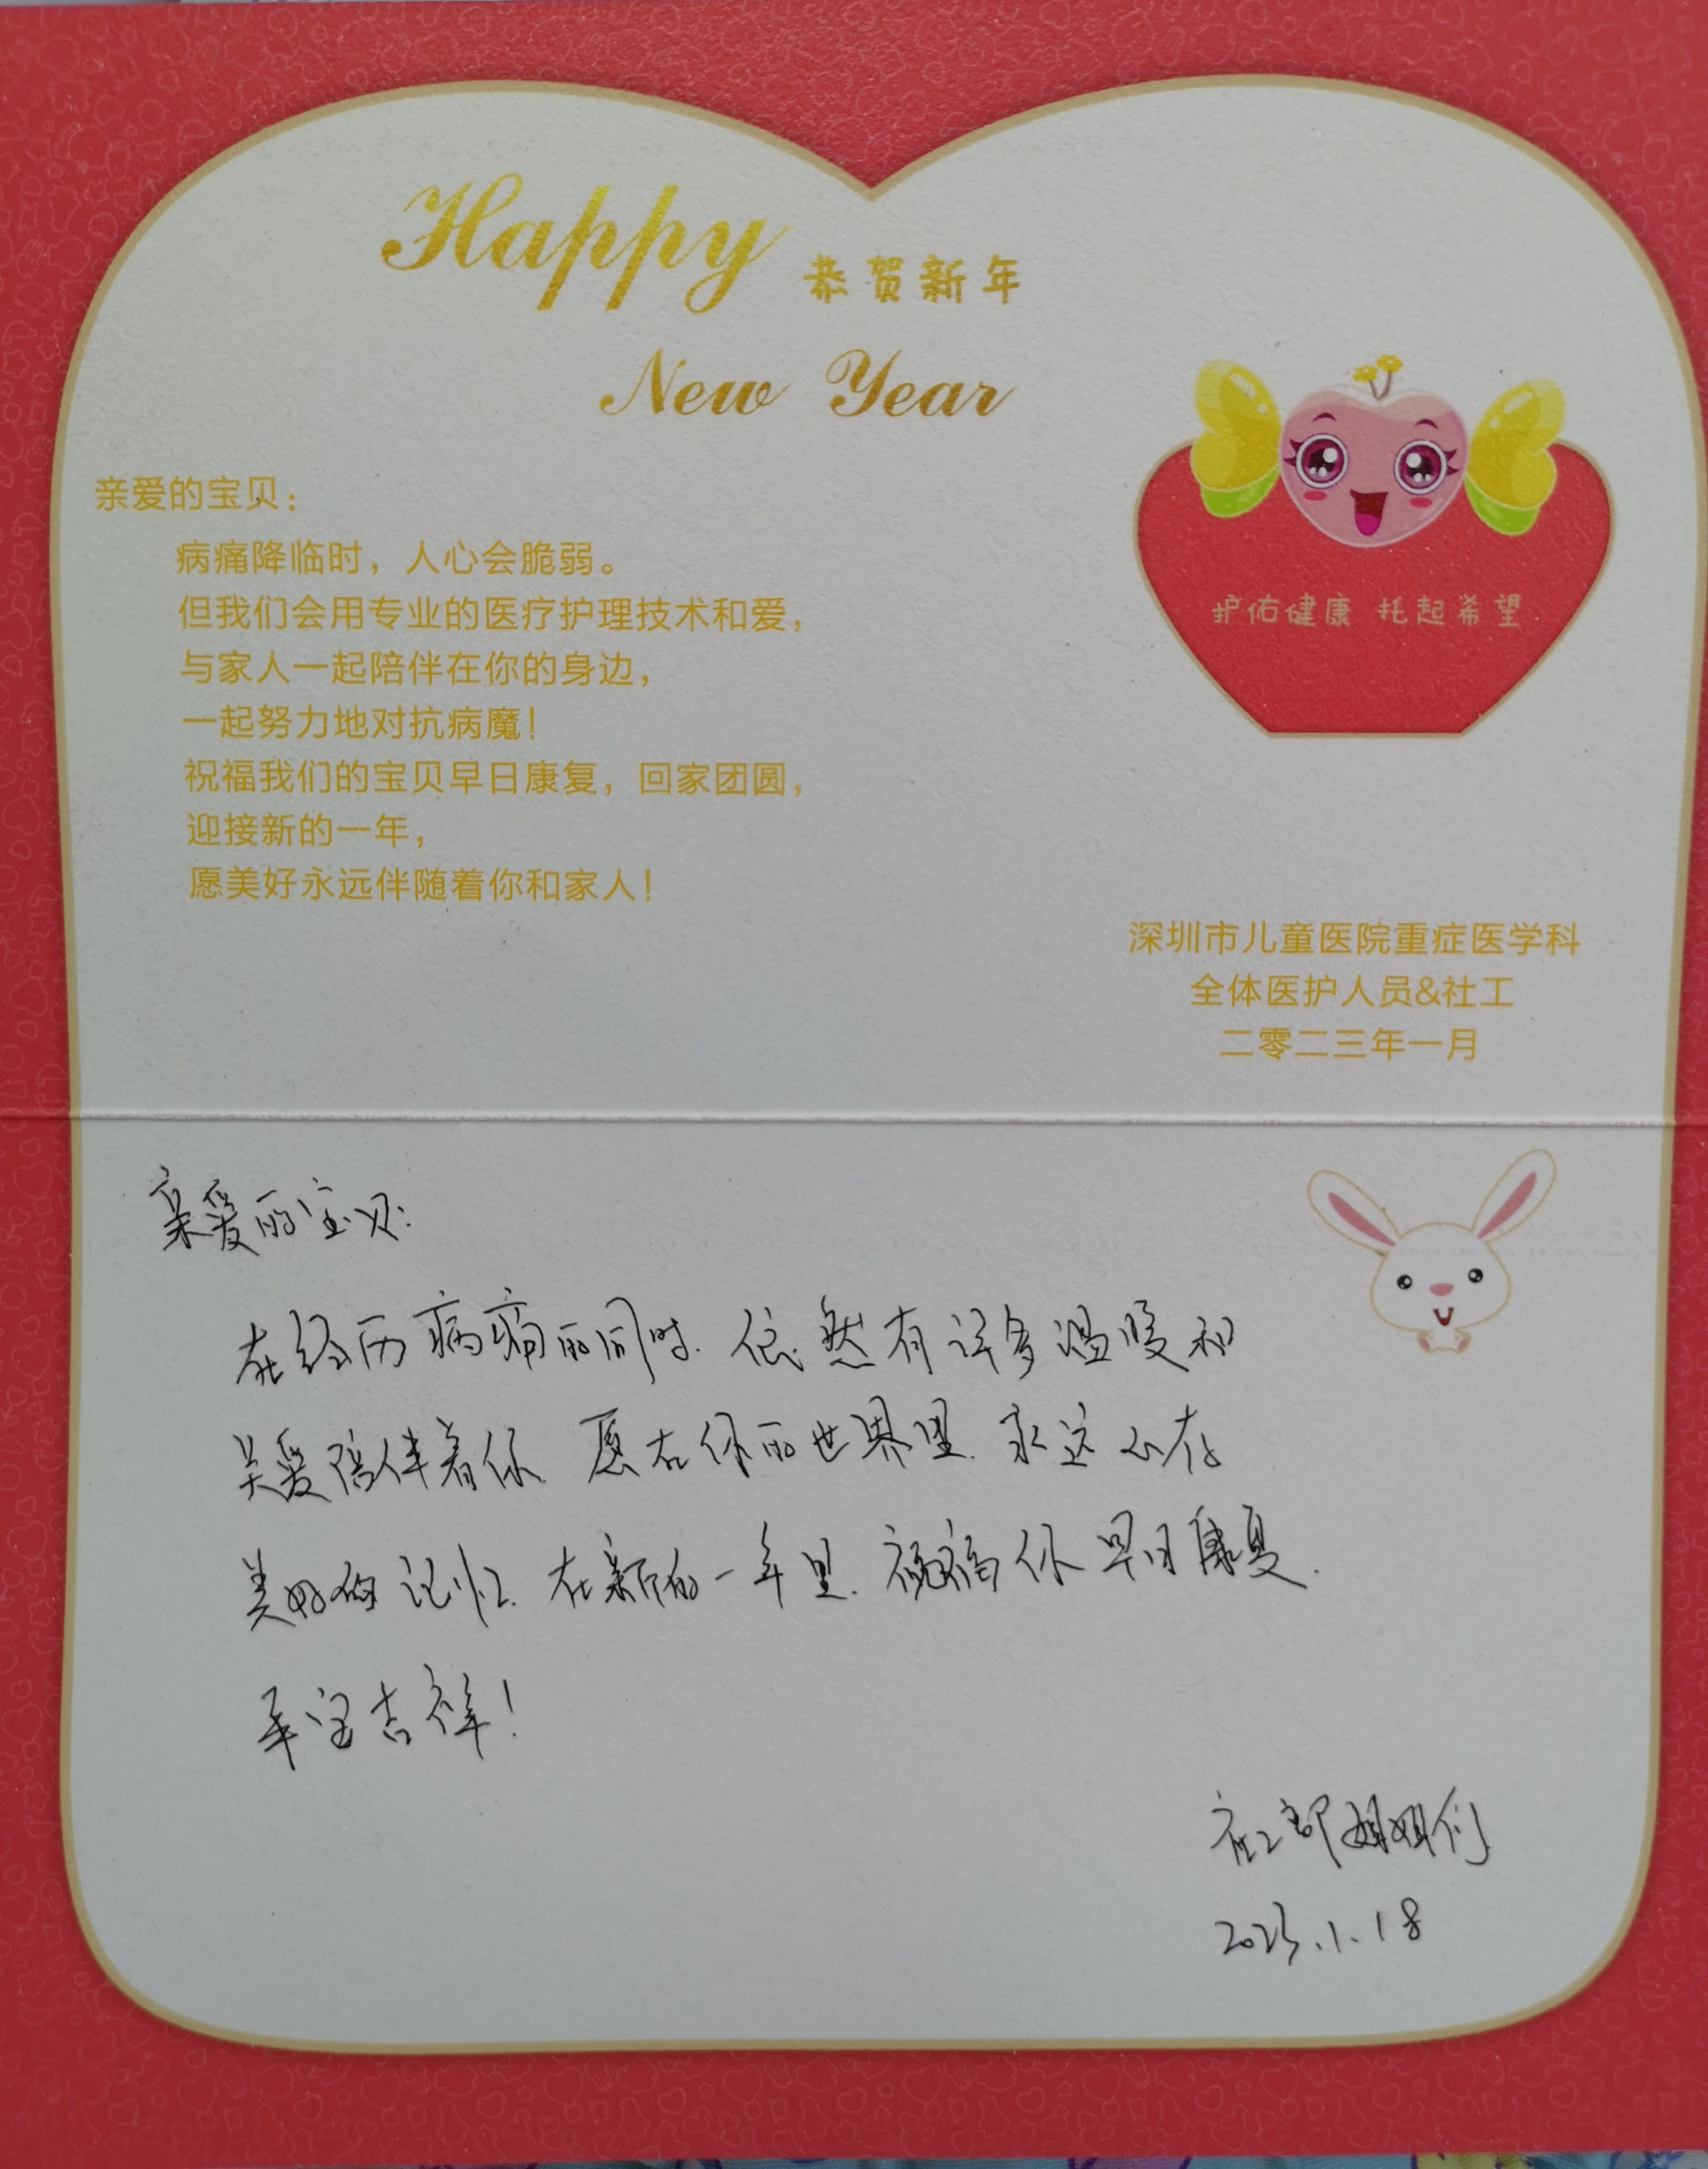 Happy 恭贺新年
New Year
亲爱的宝贝：
病痛降临时，人心会脆弱。
但我们会用专业的医疗护理技术和爱，
与家人一起陪伴在你的身边，
一起努力地对抗病魔！
祝福我们的宝贝早日康复，回家团圆，
迎接新的一年，
愿美好永远伴随着你和家人！
护佑健康 托起希望
深圳市儿童医院重症医学科
全体医护人员&社工
二零二三年一月
亲爱的宝贝:
在经历病痛的同时.依然有许多温暖和
关爱陪伴着你.愿在你的世界里.永远心存
美好的记忆.在新的一年里.祝福你早日康复.
平安吉祥!
社工部姐姐们
2023.1.18